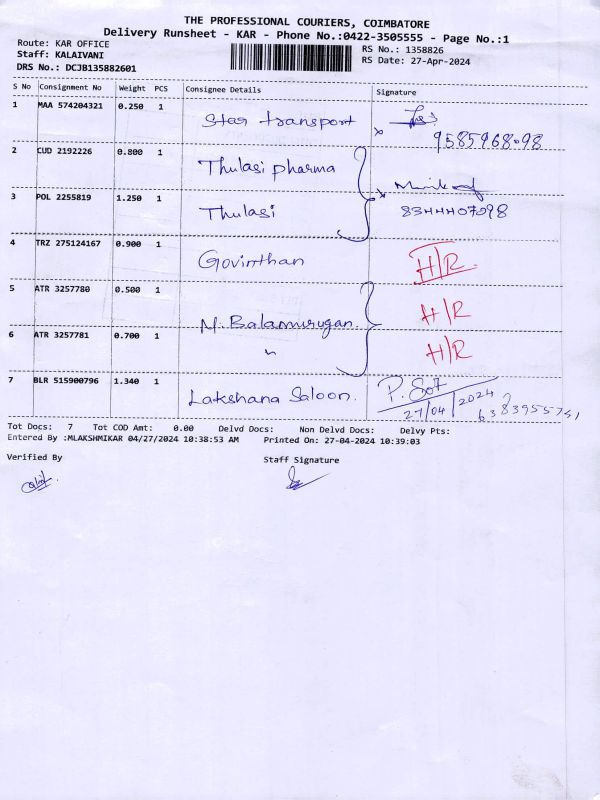 THE PROFESSIONAL COURIERS, COIMBATORE
Delivery Runsheet - KAR - Phone No.:0422-3505555 - Page No.:1
Route: KAR OFFICE
Staff: KALAIVANI
DRS No.: DCJB135882601
RS No.: 1358826
RS Date: 27-Apr-2024
S No Consignment No Weight PCS Consignee Details Signature
1 MAA 574204321 0.250 1 Star transport x
9585968098
2 CUD 2192226 0.800 1 Thulasi pharma x
3 POL 2255819 1.250 1 Thulasi 8344407098
4 TRZ 275124167 0.900 1 Govinthan H/R
5 ATR 3257780 0.500 1 M. Balamurugan H/R
6 ATR 3257781 0.700 1 " H/R
7 BLR 515900796 1.340 1 Lakshana Saloon.
27/04/2024
Tot Docs: 7 Tot COD Amt: 0.00 Delvd Docs: Non Delvd Docs: Delvy Pts:
Entered By :MLAKSHMIKAR 04/27/2024 10:38:53 AM Printed On: 27-04-2024 10:39:03
Verified By Staff Signature